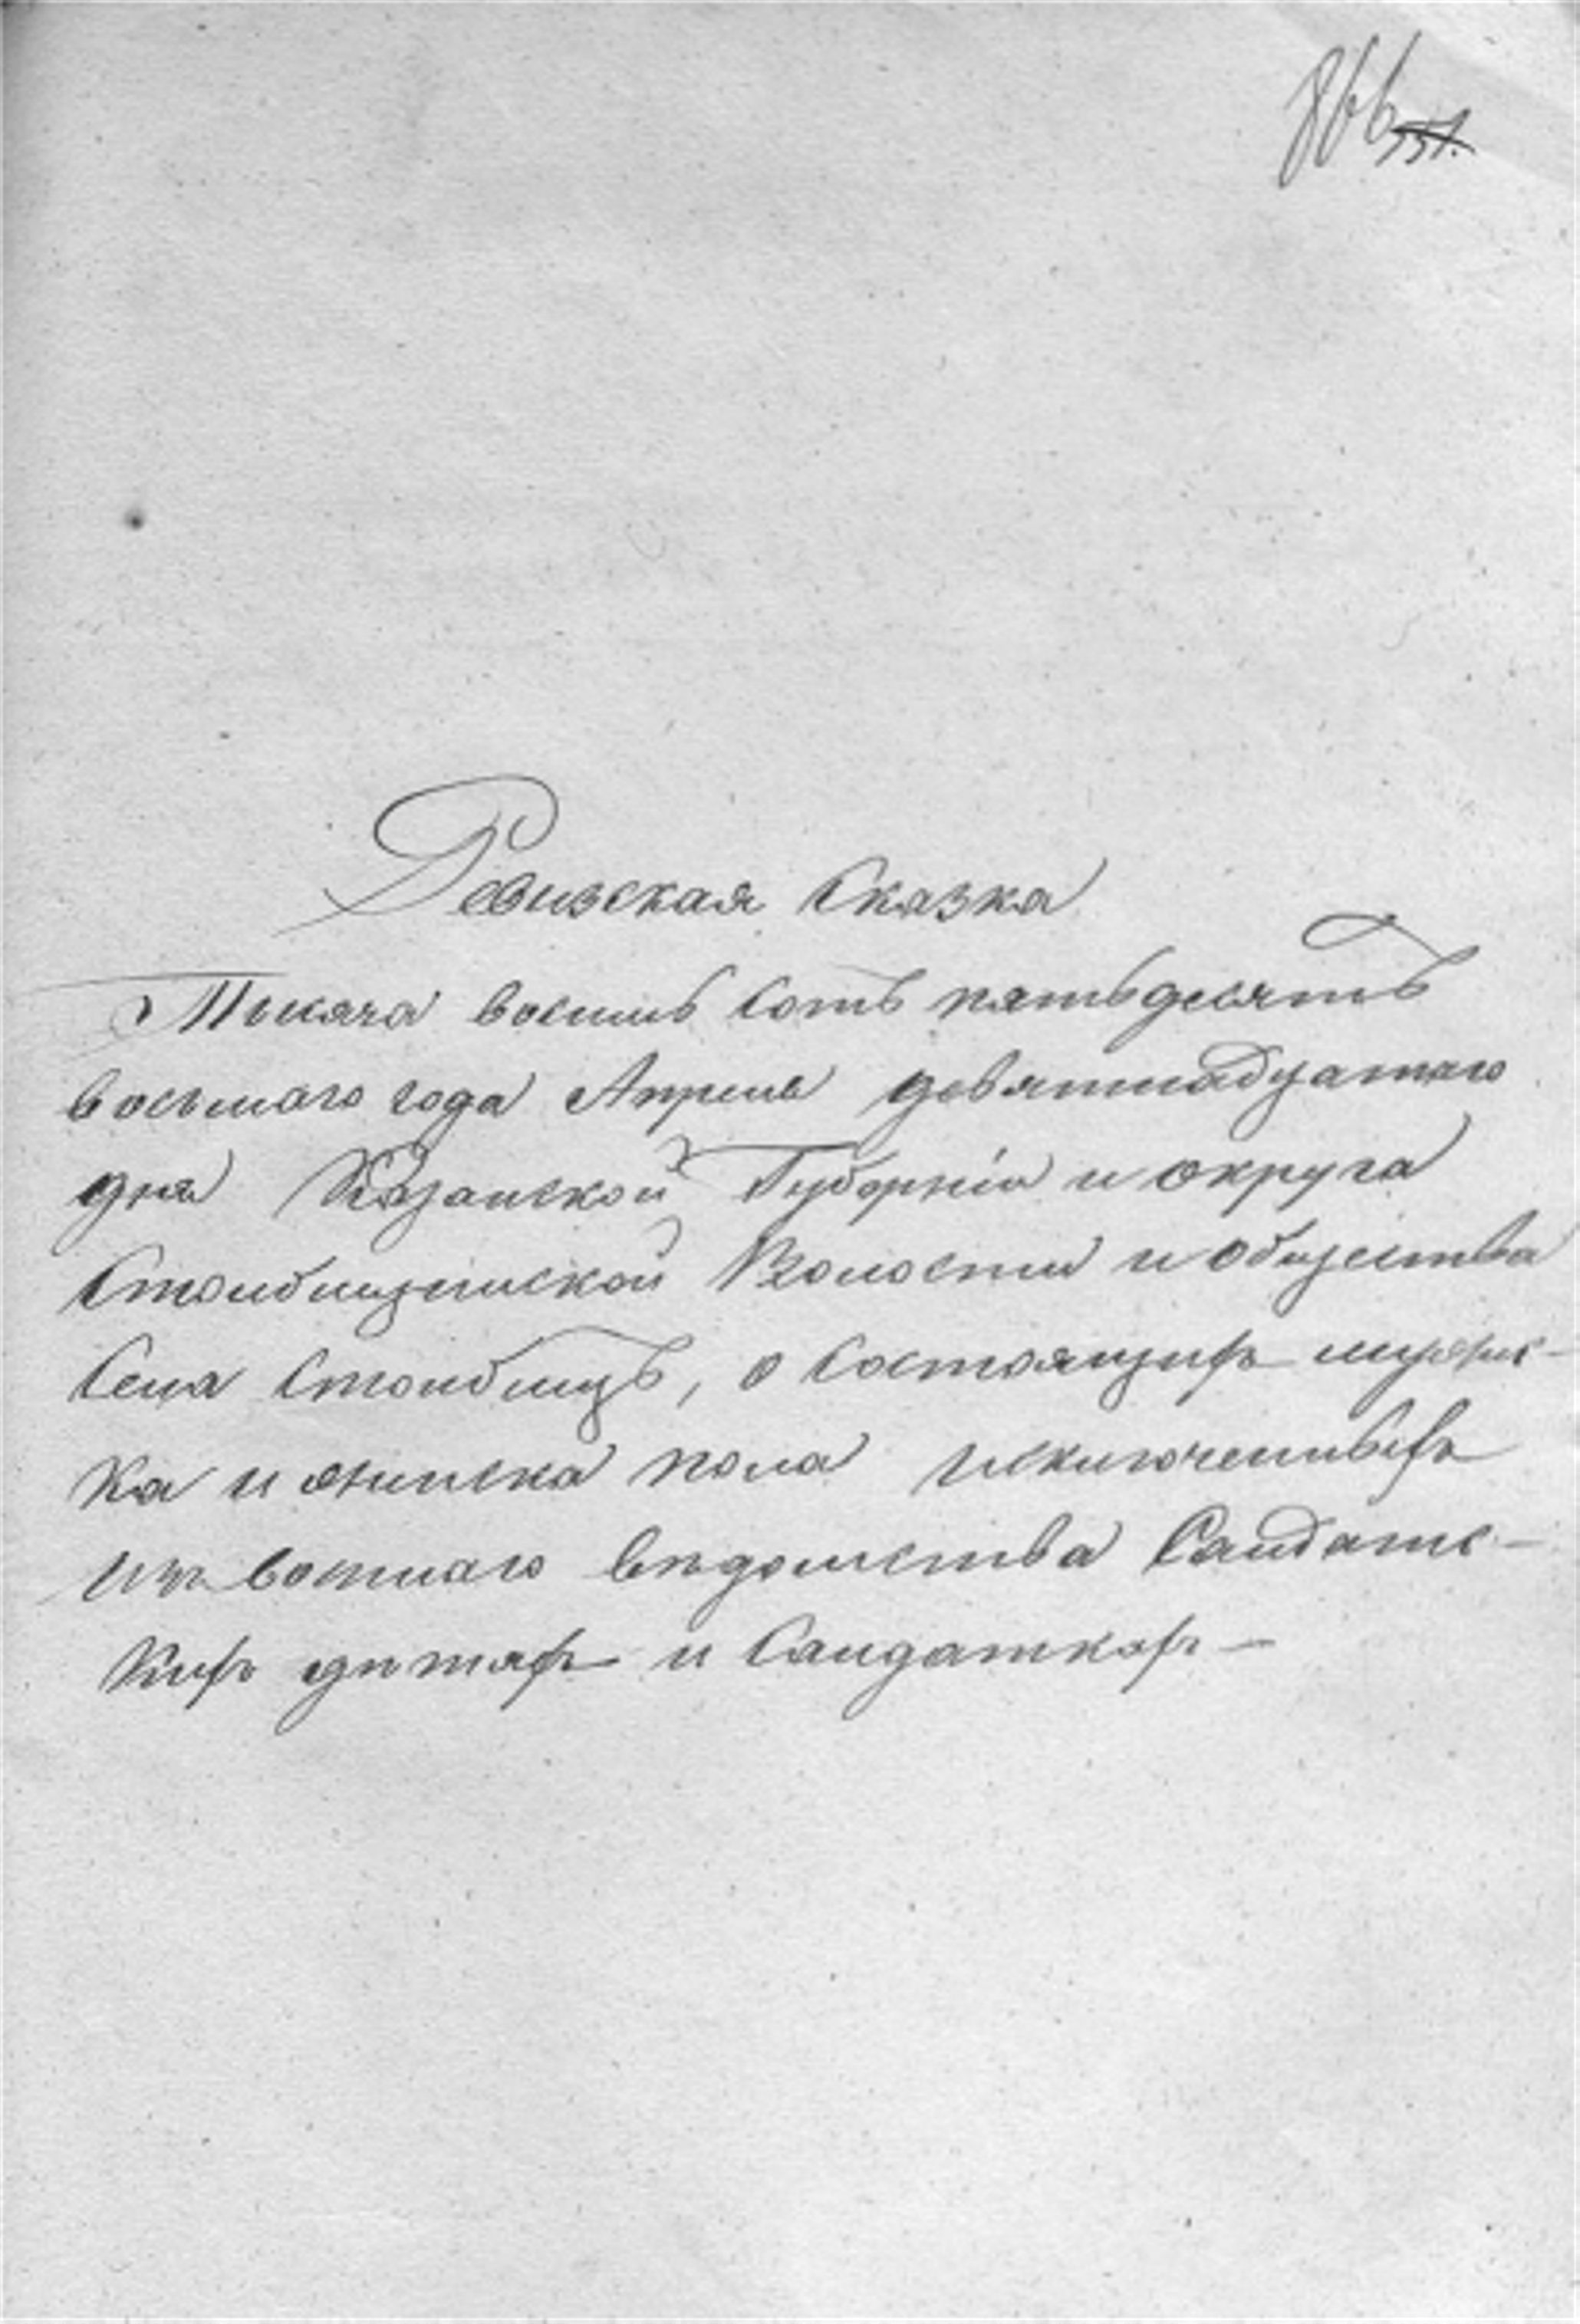 866
Ревизская Сказка
Тысяча восемь сотъ пятьдесятъ
восьмаго года Апреля девятнадцатаго
дня Казанской Губернiи и округа
Столбищенской Волости и общества
Села Столбищъ, о состоящихъ мужес-
ка и женска пола исключенныхъ
изъ военнаго вѣдомства Салдатс-
кихъ дѣтяхъ и Салдаткахъ